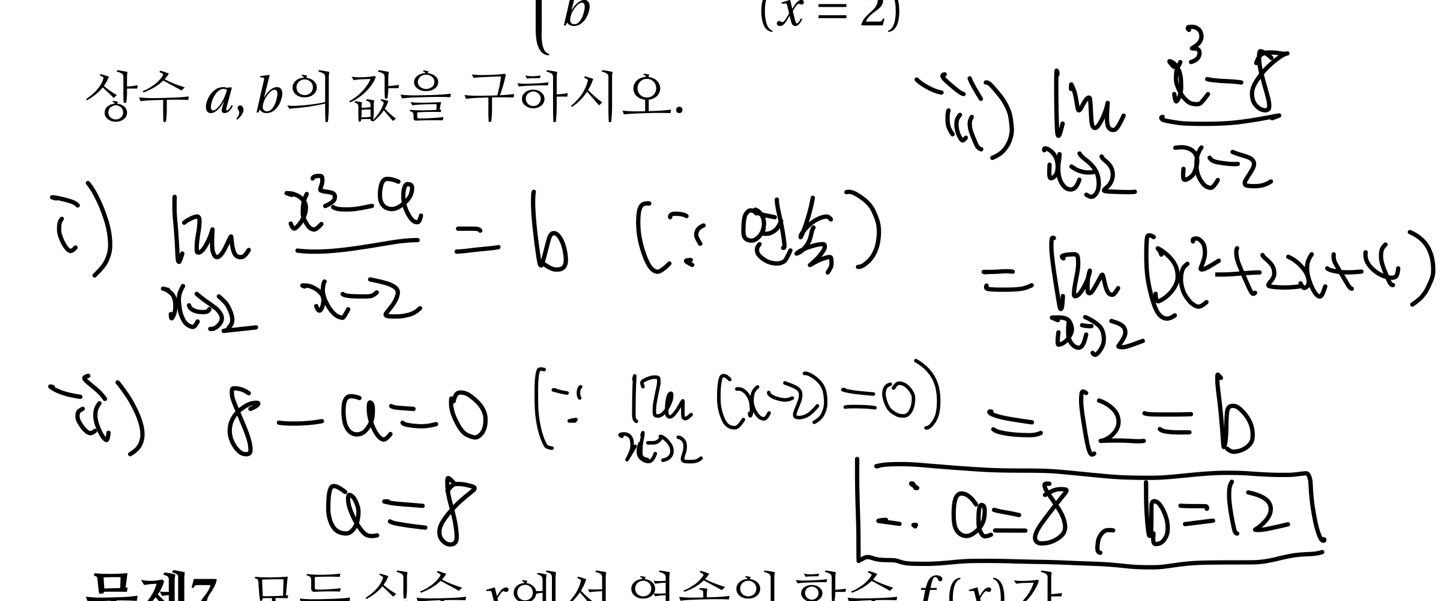 b (x = 2)
상수 a, b의 값을 구하시오.
i) lim x→2 (x³-a)/(x-2) = b (∵ 연속)
ii) 8-a=0 (∵ lim x→2 (x-2)=0)
a=8
iii) lim x→2 (x³-8)/(x-2)
= lim x→2 (x²+2x+4)
= 12 = b
∴ a=8, b=12
문제7 모든 실수 x에서 연속인 함수 f(x)가